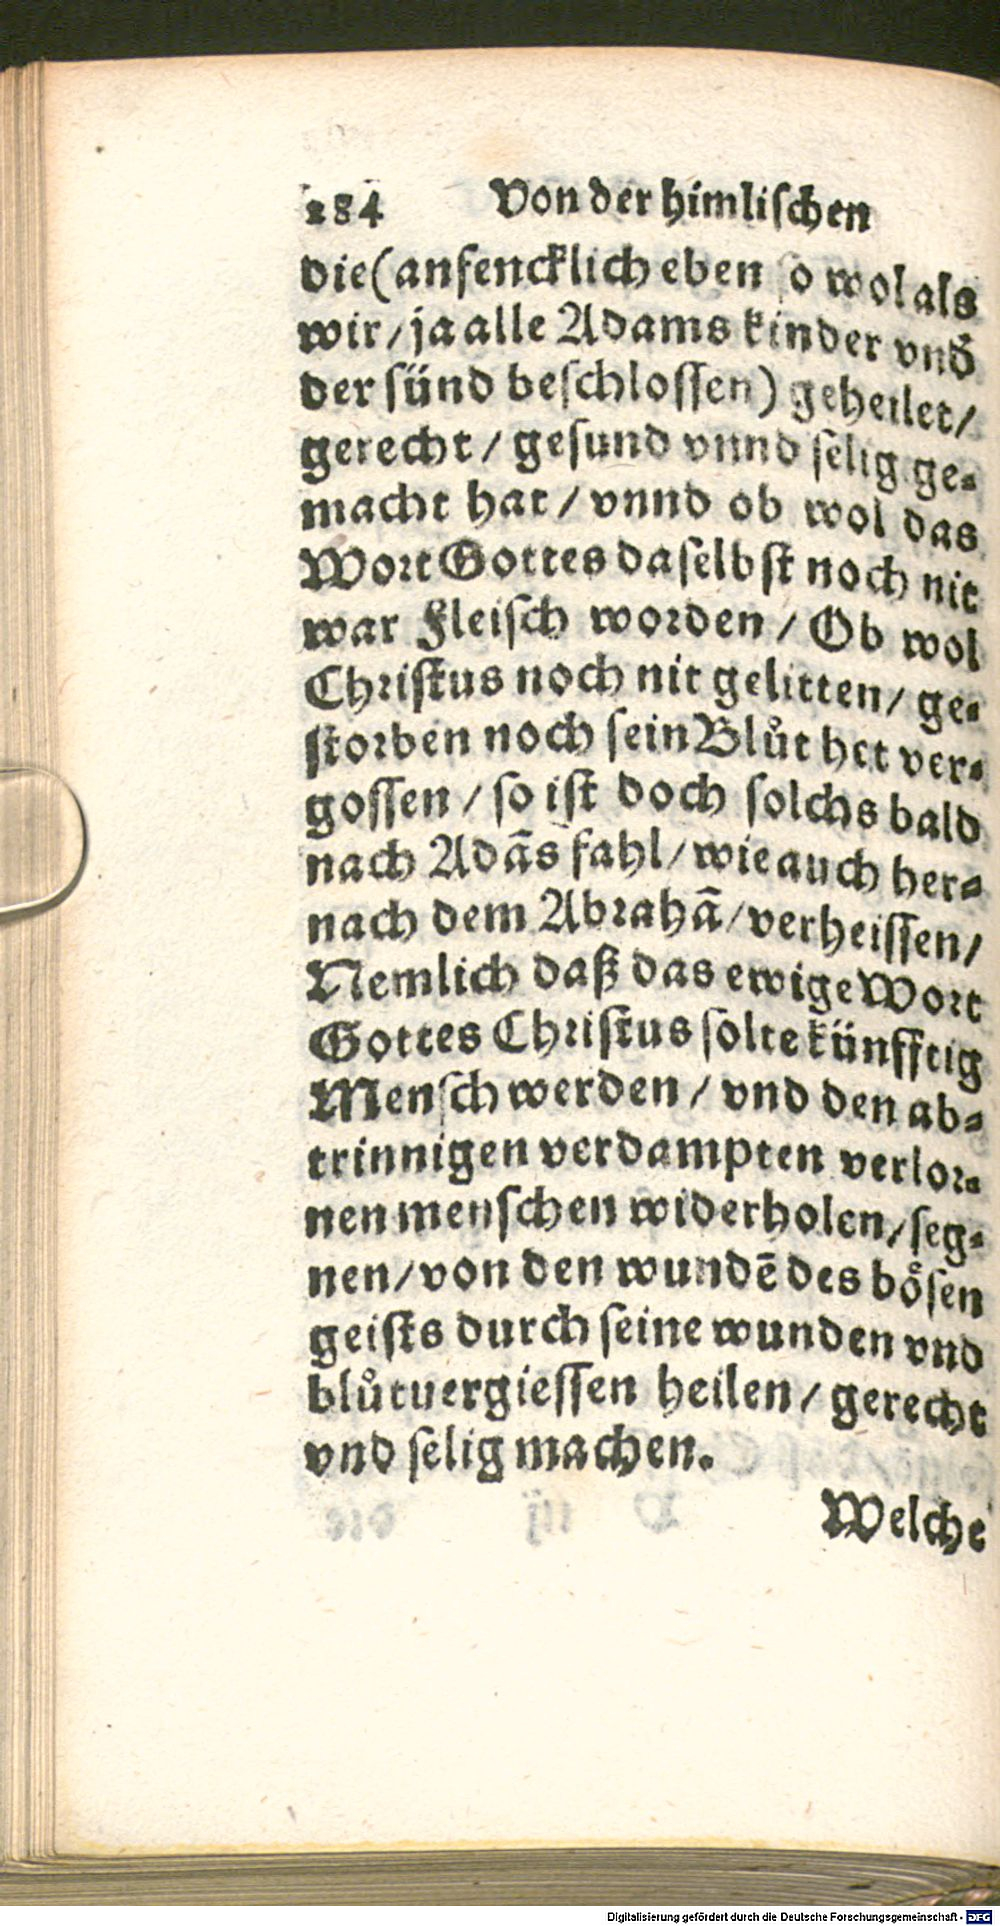 284 Von der himliſchen
die (anfencklich eben ſo wol als
wir / ja alle Adams kinder vnd̕
der ſünd beſchloſſen) geheilet /
gerecht / geſund vnnd ſelig ge⸗
macht hat / vnnd ob wol das
Wort Gottes daſelbſt noch nit
war Fleiſch worden / Ob wol
Chriſtus noch nit gelitten / ge⸗
ſtorben noch ſein Blůt het ver⸗
goſſen / ſo iſt doch ſolchs bald
nach Adãs fahl / wie auch her⸗
nach dem Abrahã / verheiſſen /
Nemlich daß das ewige Wort
Gottes Chriſtus ſolte künfftig
Menſch werden / vnd den ab⸗
trinnigen verdampten verlor⸗
nen menſchen widerholen / ſeg⸗
nen / von den wundẽ des boͤſen
geiſts durch ſeine wunden vnd
blůtuergieſſen heilen / gerecht
vnd ſelig machen.
Welche
Digitalisierung gefördert durch die Deutsche Forschungsgemeinschaft - DFG